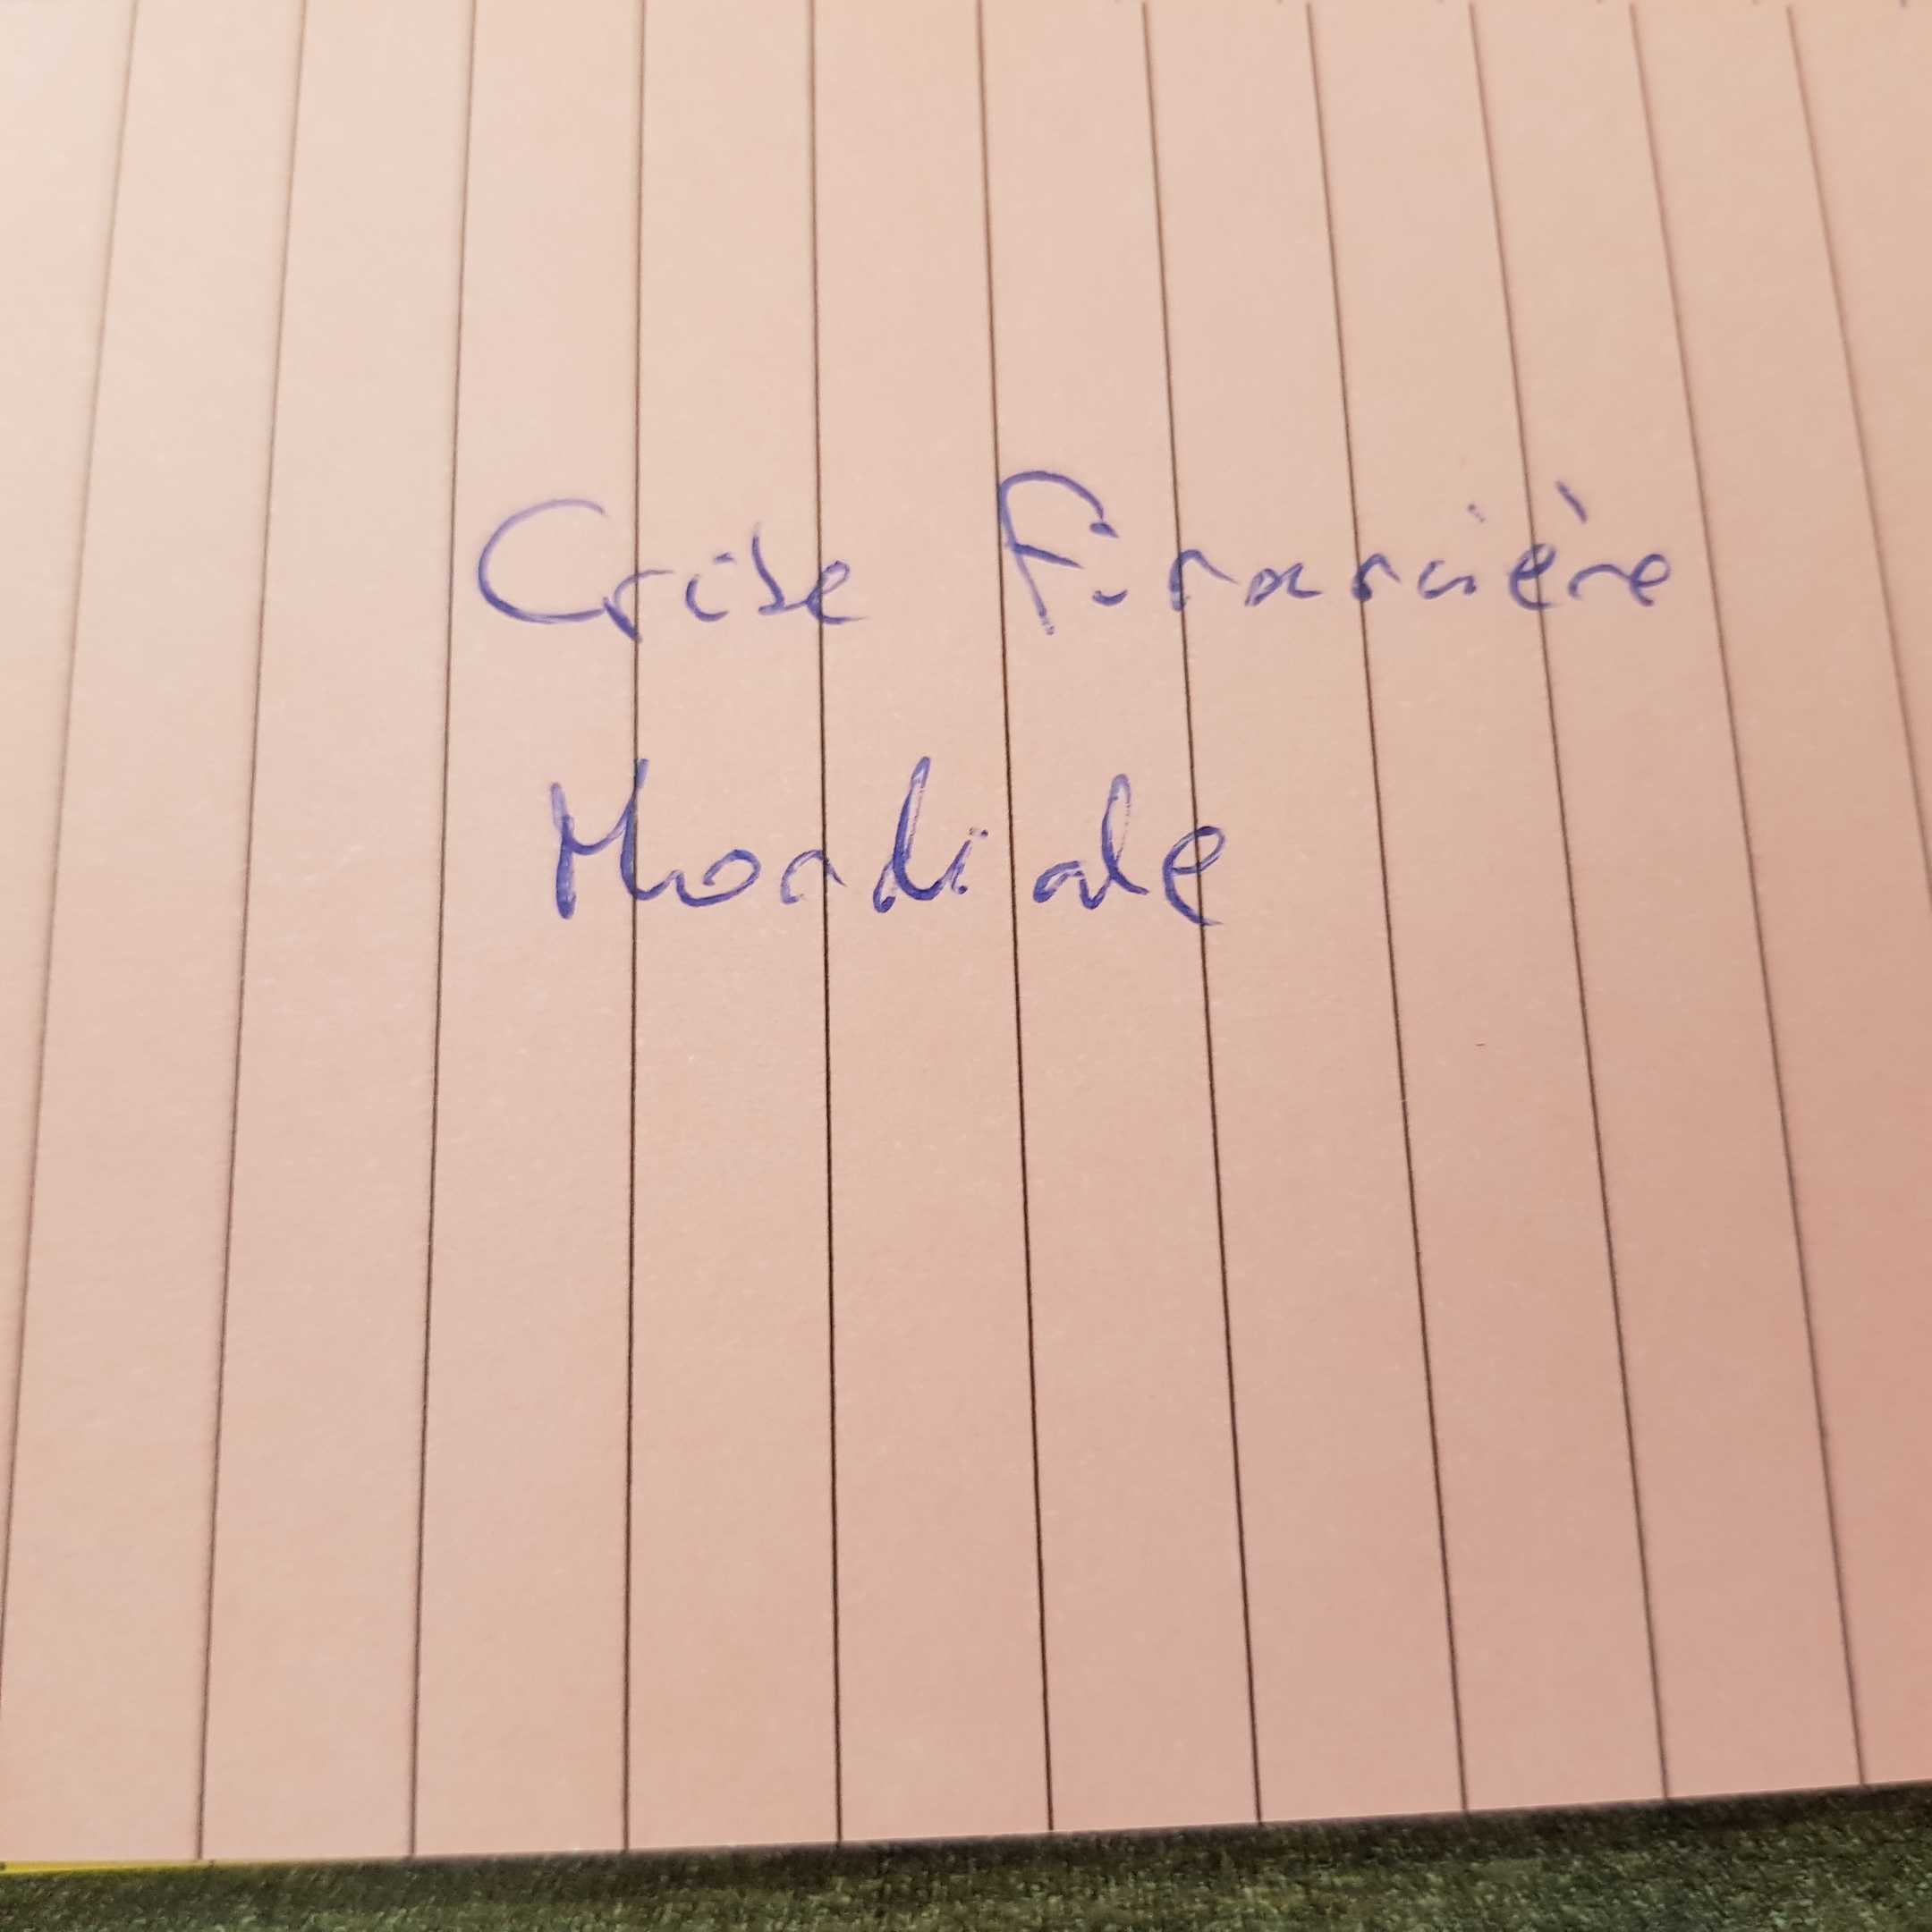 Crise Financière
Mondiale